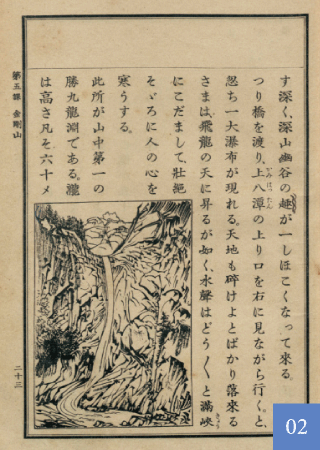 す深く、深山幽谷の趣が一しほこくなって來る。
つり橋を渡り、上八潭の上り口を右に見ながら行くと、
かみはったん
忽ち一大瀑布が現れる。天地も碎けよとばかり落來る
さまは、飛龍の天に昇るが如く、水聲はどう〳〵と滿峽
にこだまして、壯絶
そゞろに人の心を
寒うする。
此所が山中第一の
勝九龍淵である。瀧
は高さ凡そ六十メ
第五課 金剛山
二十三
02